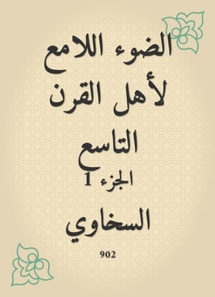 الضوء اللامع
لأهل القرن
التاسع
الجزء 1
السخاوي
902